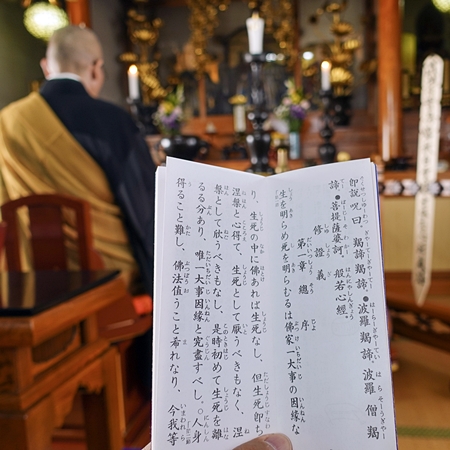 即説呪曰。羯諦羯諦●波羅羯諦。波羅僧羯
諦●菩提薩婆訶。般若心経。
修證義
第一章總序
生を明らめ死を明らむるは佛家一大事の因縁な
り、生死の中に佛あれば生死なし、但生死即ち
涅槃と心得て、生死として厭うべきもなく、涅
槃として欣うべきもなし、是時初めて生死を離
るる分あり、唯一大事因縁と究盡すべし。○人身
得ること難し、佛法値うこと希れなり、今我等